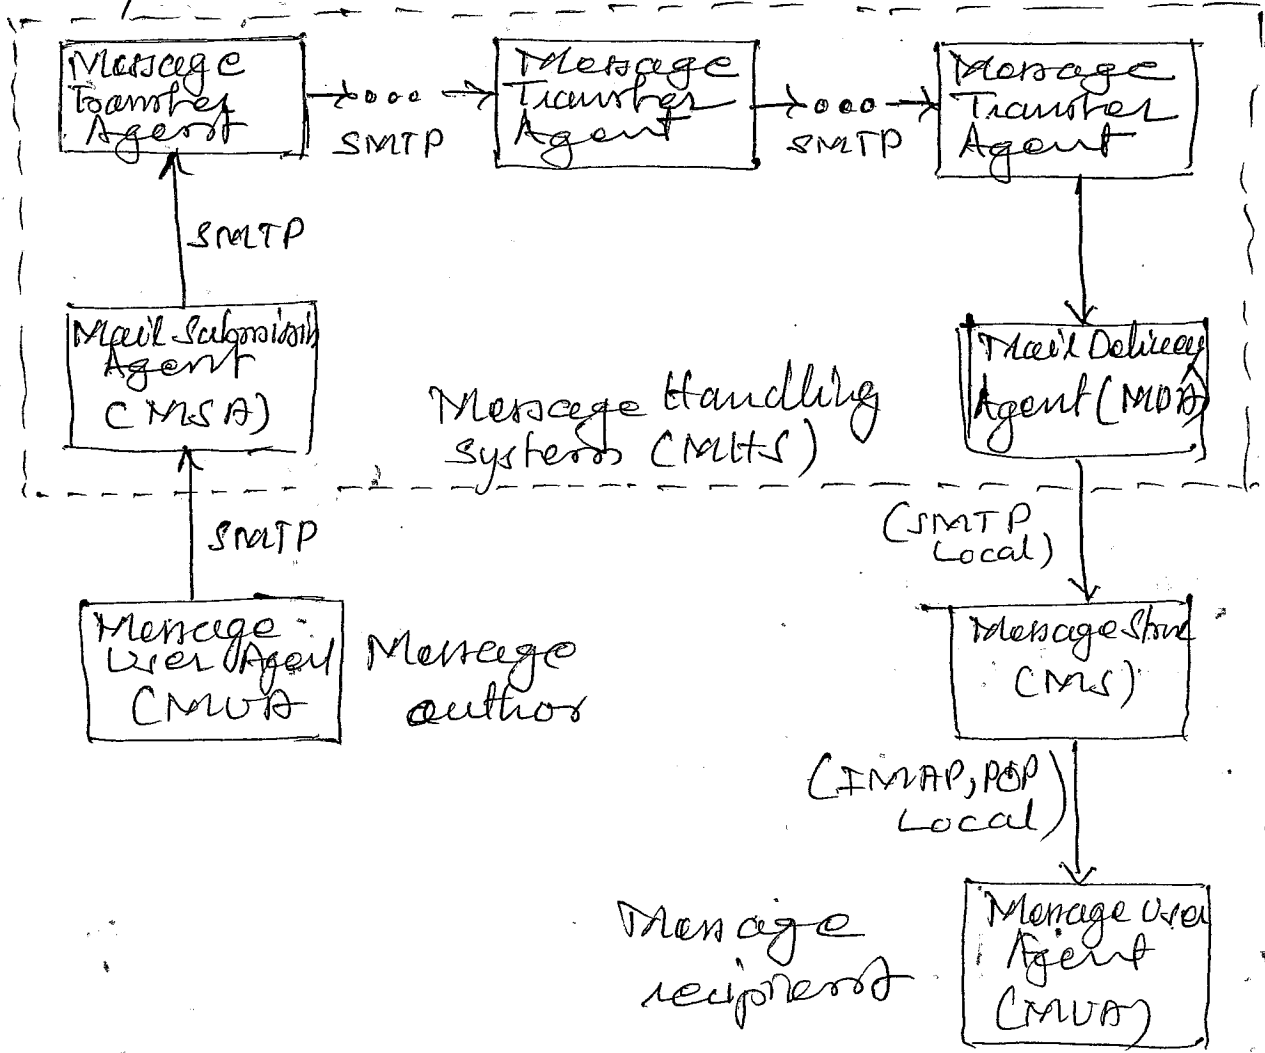 Message
Transfer
Agent
SMTP
Message
Transfer
Agent
SMTP
Message
Transfer
Agent
SMTP
Mail Submission
Agent
(MSA)
Message Handling
Systems (MHS)
Mail Delivery
Agent (MDA)
SMTP
(SMTP
Local)
Message
User Agent
(MUA
Message
author
Message Store
(MS)
(IMAP, POP
Local)
Message
recipient
Message User
Agent
(MUA)